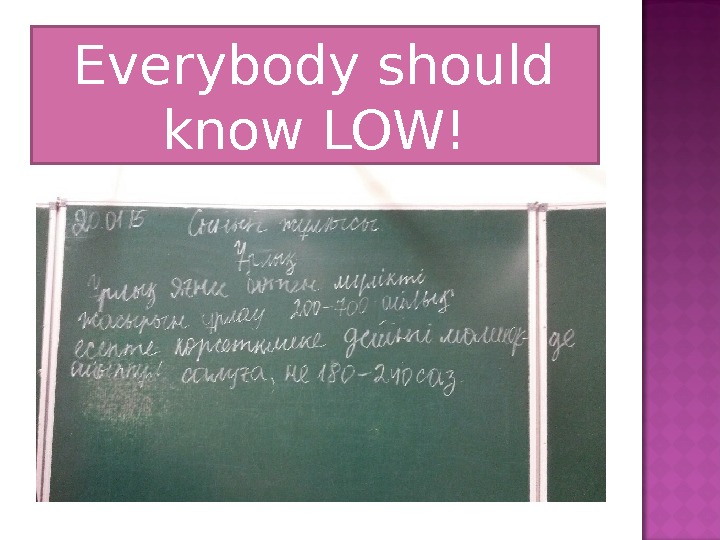 Everybody should
know LOW!
20.01 15 Сынып жұмысы
Ұрлық
Ұрлық яғни бөтен мүлікті
жасырын ұрлау 200-700 айлық
есептік көрсеткішке дейінгі мөлшерде
айыппұл салуға, не 180-240 саг